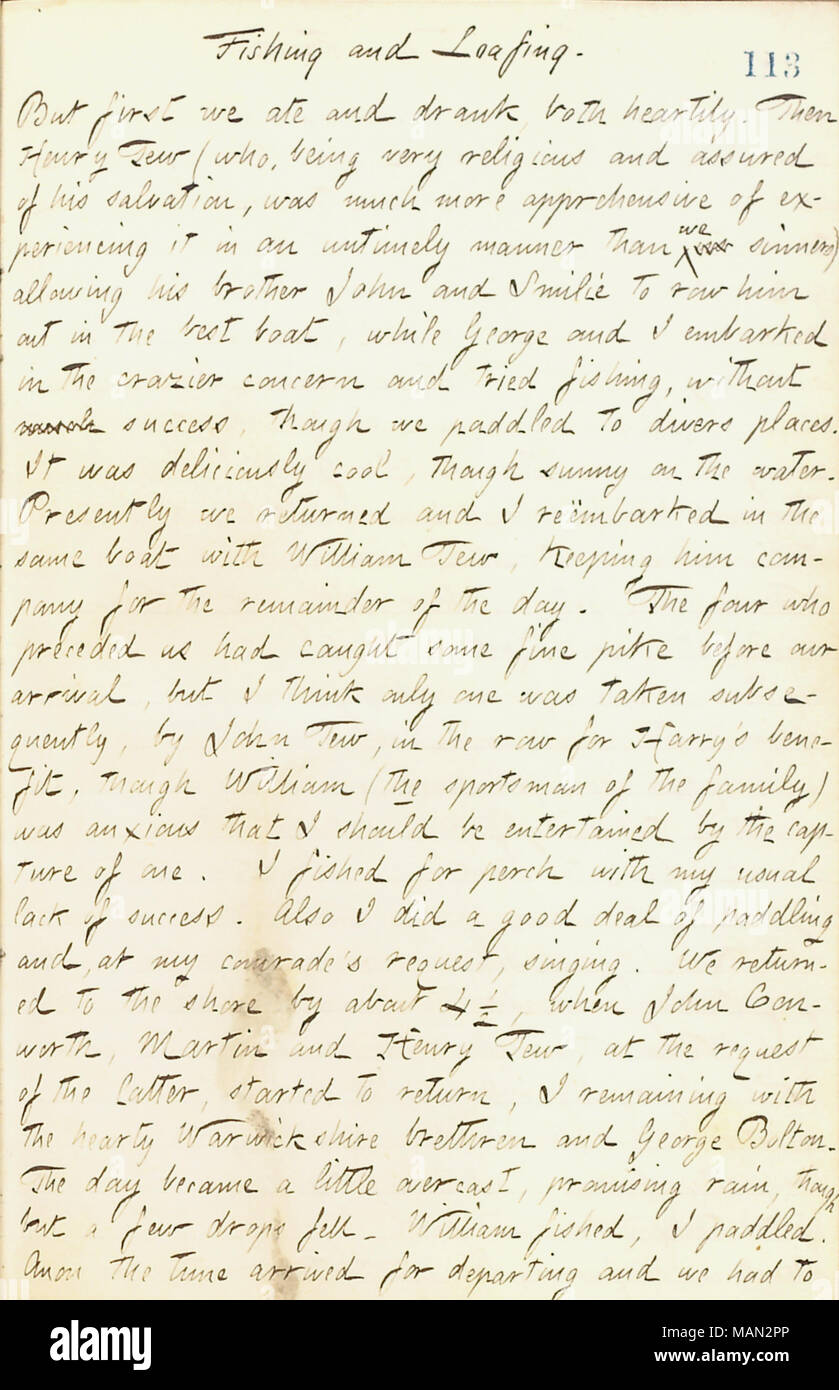 Fishing and Loafing.
113
But first we ate and drank, both heartily. Then
Henry Tew (who, being very religious and assured
of his salvation, was much more apprehensive of ex-
periencing it in an untimely manner than we us sinners)
allowing his brother John and Smilie to row him
out in the best boat, while George and I embarked
in the crazier concern and tried fishing, without
much success, though we paddled to divers places.
It was deliciously cool, though sunny on the water.
Presently we returned and I reëmbarked in the
same boat with William Tew, keeping him com-
pany for the remainder of the day. The four who
preceded us had caught some fine pike before our
arrival, but I think only one was taken subse-
quently, by John Tew, in the row for Harry's bene-
fit, though William (the sportsman of the family)
was anxious that I should be entertained by the cap-
ture of one. I fished for perch with my usual
lack of success. Also I did a good deal of paddling
and, at my comrade's request, singing. We return-
ed to the shore by about 4 1/2, when John Con-
worth, Martin and Henry Tew, at the request
of the latter, started to return, I remaining with
the hearty Warwickshire brethren and George Bolton.
The day became a little overcast, promising rain, though
but a few drops fell. William fished, I paddled.
Anon the time arrived for departing and we had to
alamy
Image ID: MAN2PP
www.alamy.com